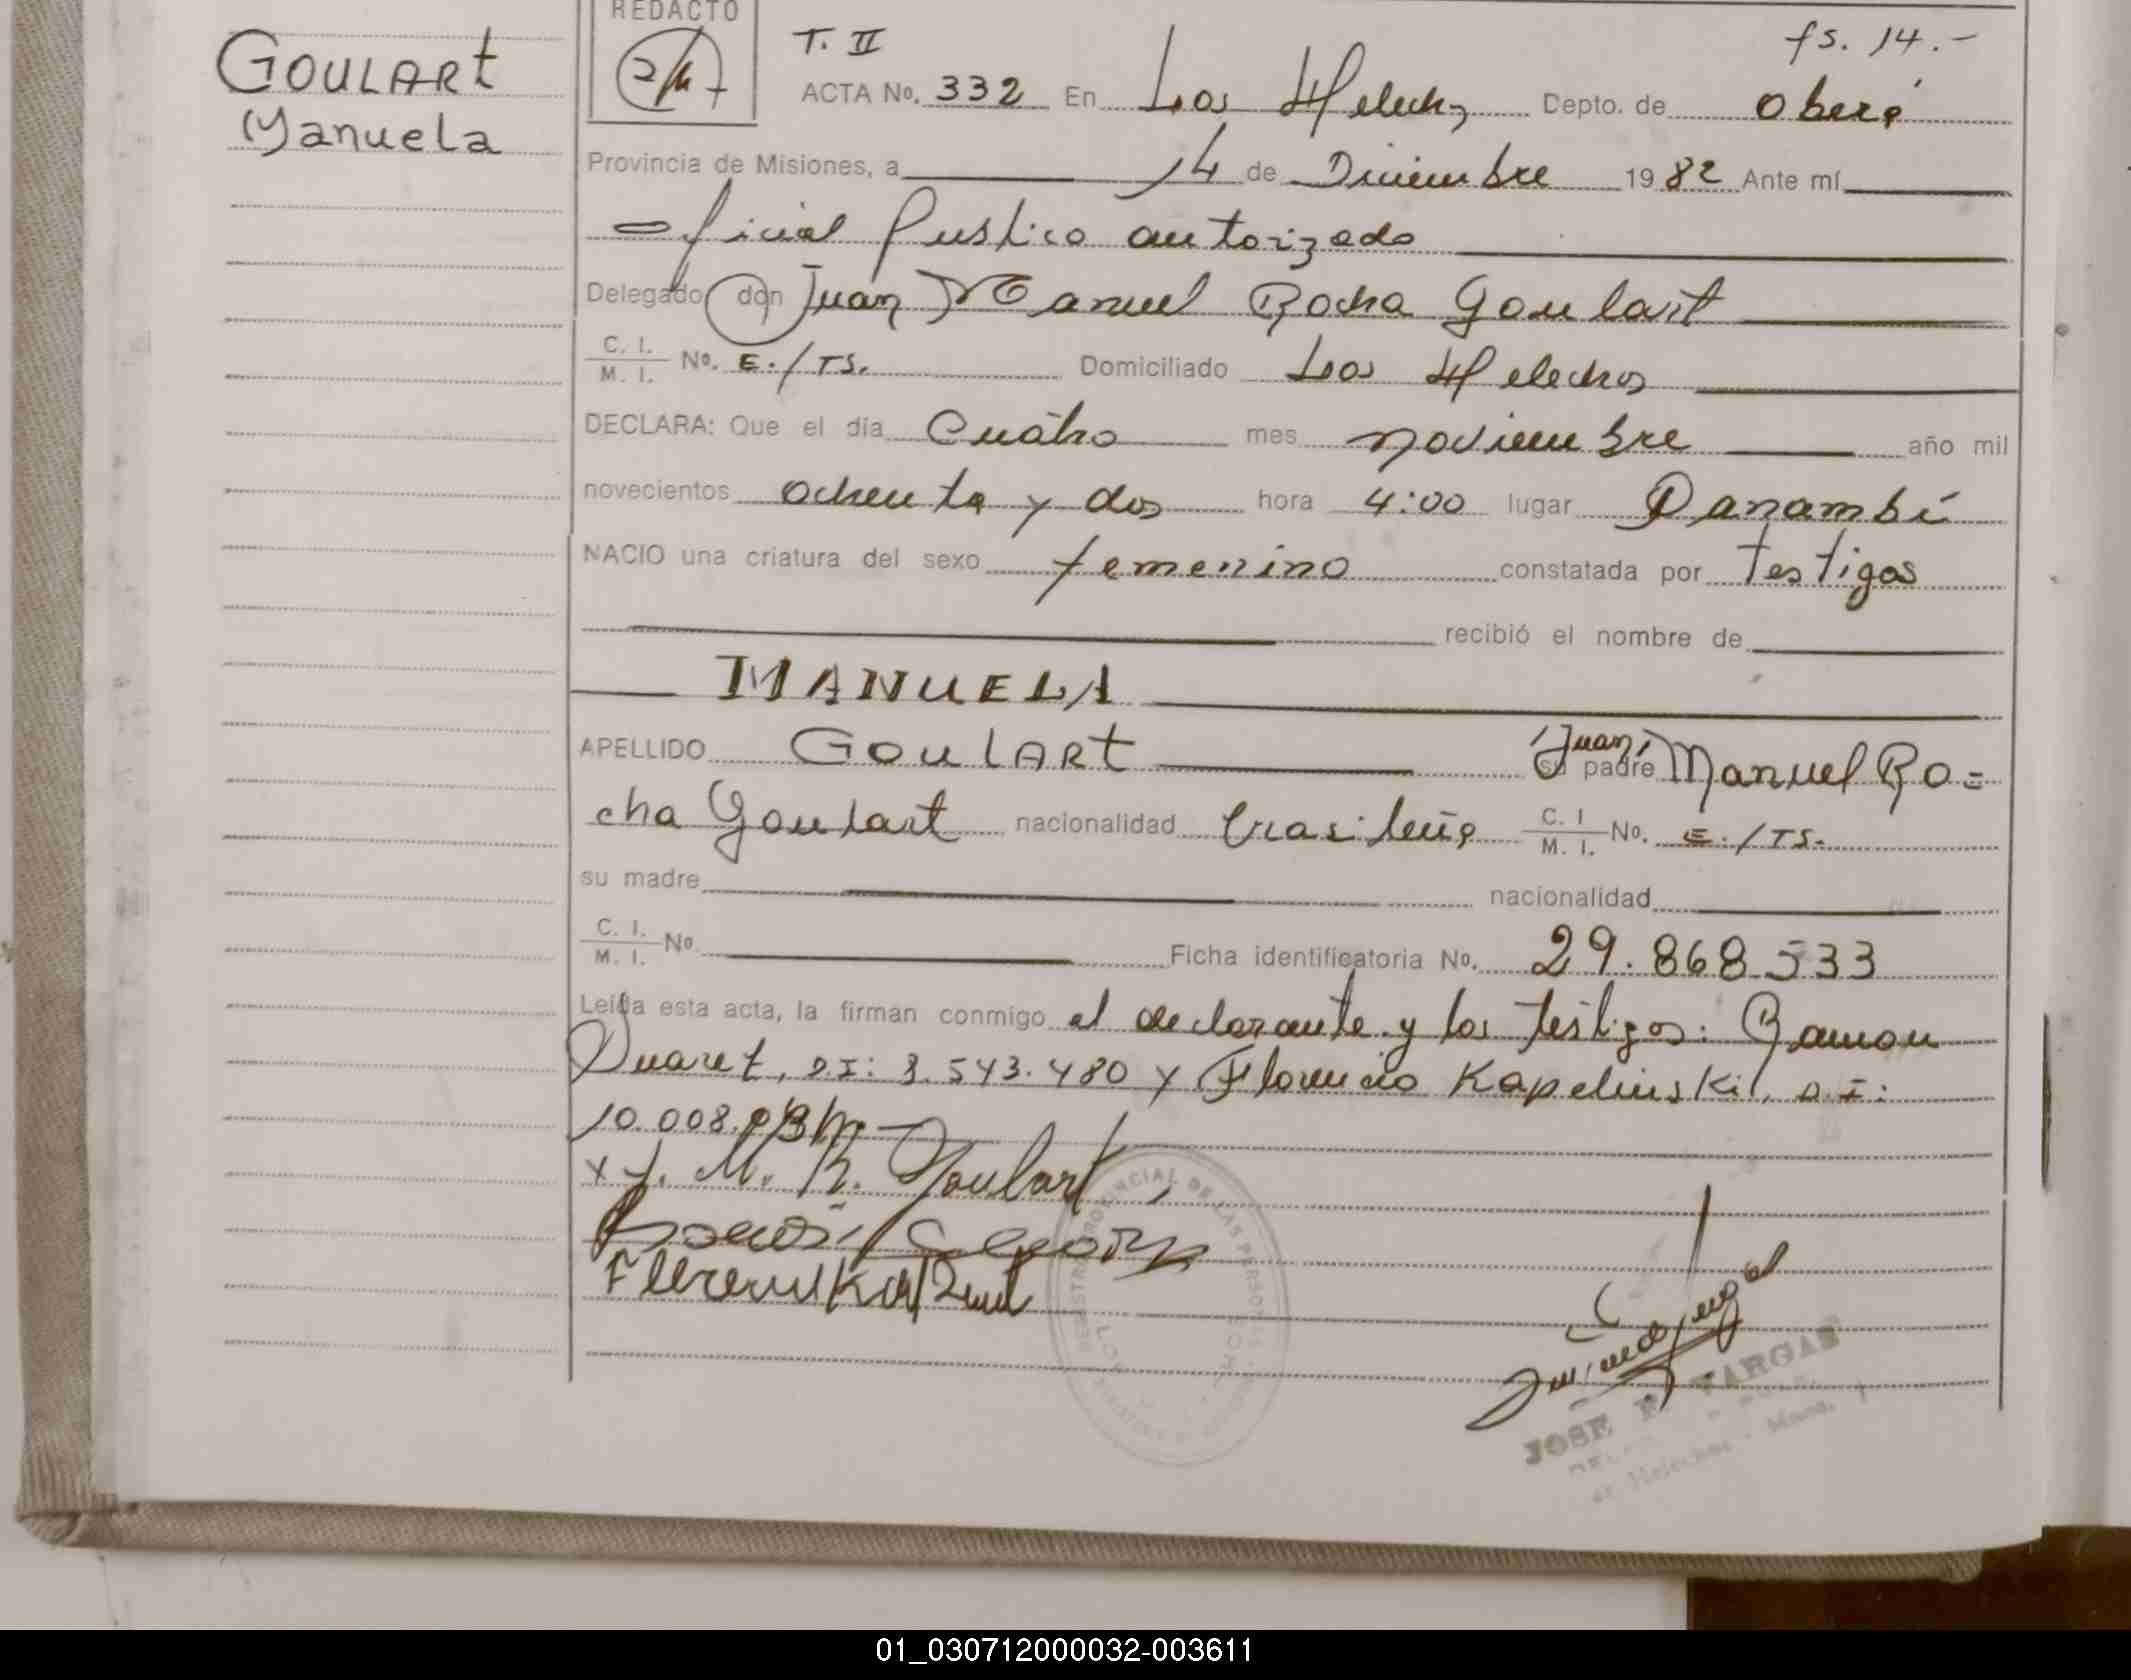 REDACTO
GOULARt
Manuela
T. II
fs. 14.-
ACTA No. 332 En Los Helechos Depto. de Oberá
Provincia de Misiones, a 14 de Diciembre 1982 Ante mí
Oficial Publico autorizado
Delegado don Juan Manuel Rocha Goulart
C. I. M. I. No. E./TS. Domiciliado Los Helechos
DECLARA: Que el día Cuatro mes noviembre año mil
novecientos ochenta y dos hora 4:00 lugar Panambí
NACIO una criatura del sexo femenino constatada por testigos
recibió el nombre de
MANUELA
APELLIDO GOULARt su padre "Juan" Manuel Ro=
cha Goulart nacionalidad brasileña C. I M. I. No. E./TS.
su madre nacionalidad
C. I. M. I. No Ficha identificatoria No. 29.868.533
Leída esta acta, la firman conmigo el declarante y los testigos: Ramon
Duaret, D.I: 8.543.480 y Florencio Kapelinski, D.I:
10.008.
x J. M. R. Goulart
REGISTRO PROVINCIAL DE LAS PERSONAS
JOSE F. VARGAS
01_030712000032-003611